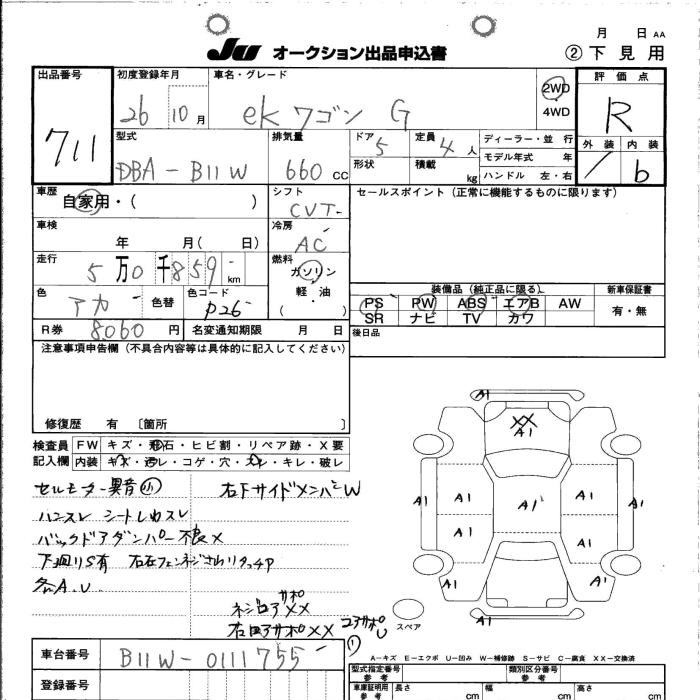 月 日 AA
JU オークション出品申込書 ② 下見用
出品番号 初度登録年月 車名・グレード 2WD 評価点
711 26 10 月 ek ワゴン G 4WD R
型式 排気量 ドア 定員 ディーラー・並行 外装 内装
DBA-B11W 660 CC 5 4 人 モデル年式 年 b
形状 積載 kg ハンドル 左・右
車歴 自家用・( ) シフト CVT セールスポイント (正常に機能するものに限ります)
車検 年 月( 日) 冷房 AC
走行 5万0千859 km 燃料 ガソリン 軽・油 ( )
装備品 (純正品に限る) 新車保証書
色 アカ 色替 色コード P26 PS PW ABS エアB AW 有・無
SR ナビ TV カワ
R券 8060 円 名変通知期限 月 日 後日品
注意事項申告欄 (不具合内容等は具体的に記入してください)
修復歴 有 〔箇所 〕
検査員 FW キズ・飛石・ヒビ割・リペア跡・X要
記入欄 内装 キズ・汚レ・コゲ・穴・スレ・キレ・破レ
セルモーター異音 小 右下サイドメンバーW
ハンスレ シート
バックドアダンパー不良X
下廻りS有
各A.U
XX
XX
A1
XX
A1
A1 A1 A1 A1 A1
A1 A1
A1 A1
A1
スペア
A-キズ E-エクボ U-凹み W-補修跡 S-サビ C-腐食 XX-交換済
車台番号 B11W-0111755 型式指定番号 参考 類別区分番号 参考
登録番号 車庫証明用 参考 長さ cm 幅 cm 高さ cm